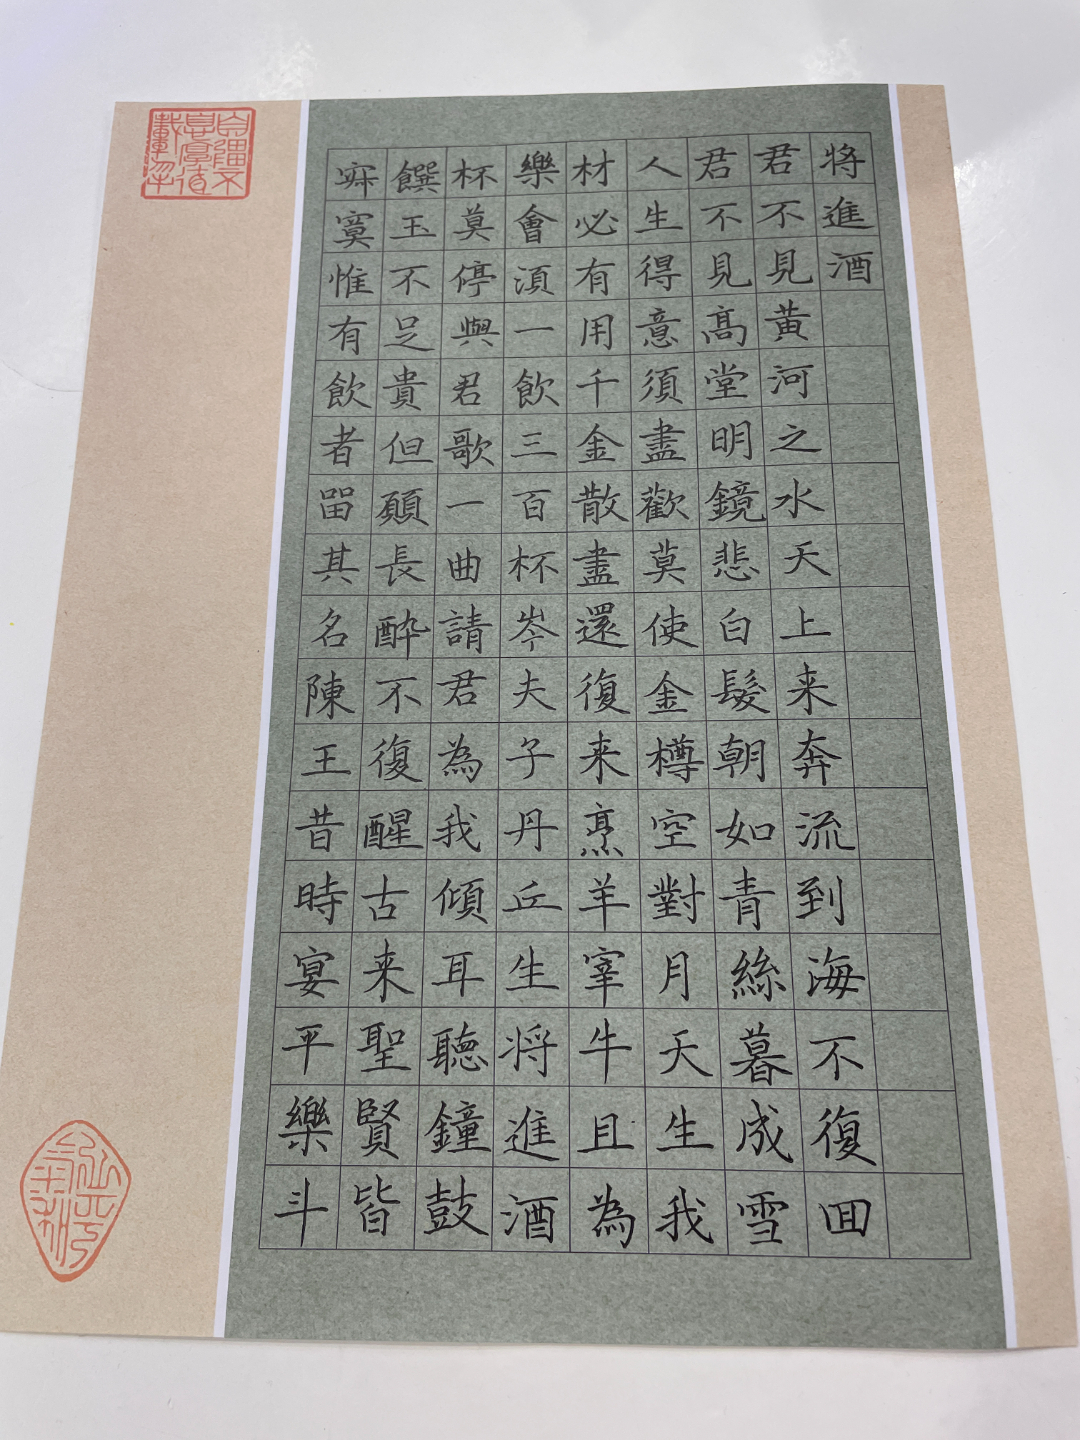 將進酒
君不見黃河之水天上来奔流到海不復囬
君不見髙堂明鏡悲白髮朝如青絲暮成雪
人生得意須盡歡莫使金樽空對月天生我
材必有用千金散盡還復来烹羊宰牛且為
樂會湏一飲三百杯岑夫子丹丘生将進酒
杯莫停與君歌一曲請君為我傾耳聽鐘鼓
饌玉不足貴但願長酔不復醒古来聖賢皆
寂寞惟有飲者留其名陳王昔時宴平樂斗
自彊不息厚德載物
心平气和